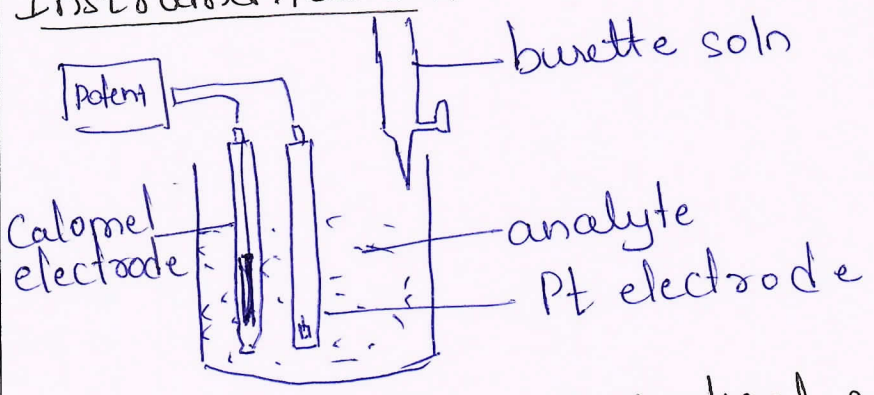 burette soln
Potent
Calomel
electrode
analyte
Pt electrode